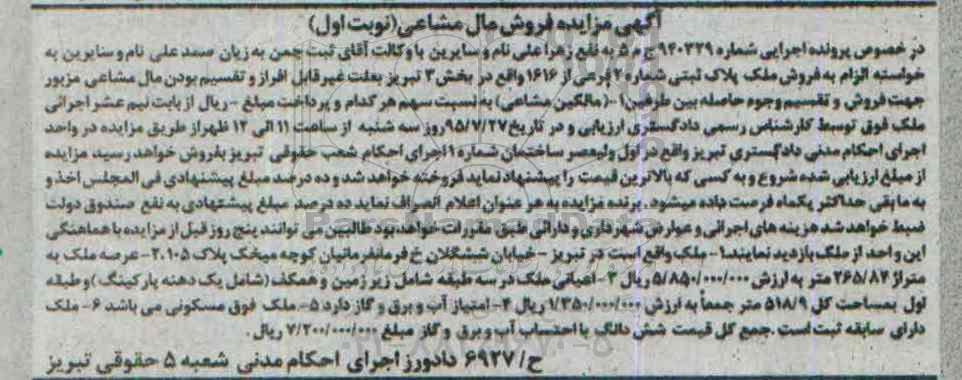 آگهی مزایده فروش مال مشاعی (نوبت اول)
در خصوص پرونده اجرایی شماره ۹۴۰۳۳۹ ج م ۵ به نفع زهرا علی نام و سایرین با وکالت آقای ثبت چمن به زیان صمد علی نام و سایرین به
خواسته الزام به فروش ملک پلاک ثبتی شماره ۲ فرعی از ۱۶۱۶ واقع در بخش ۳ تبریز بعلت غیر قابل افراز و تقسیم بودن مال مشاعی مزبور
جهت فروش و تقسیم وجوه حاصله بین طرفین ۱-(مالکین مشاعی) به نسبت سهم هر کدام و پرداخت مبلغ - ریال از بابت نیم عشر اجرائی
ملک فوق توسط کارشناس رسمی دادگستری ارزیابی و در تاریخ ۹۵/۷/۲۷ روز سه شنبه از ساعت ۱۱ الی ۱۲ ظهر از طریق مزایده در واحد
اجرای احکام مدنی دادگستری تبریز واقع در اول ولیعصر ساختمان شماره ۱ اجرای احکام شعب حقوقی تبریز بفروش خواهد رسید مزایده
از مبلغ ارزیابی شده شروع و به کسی که بالاترین قیمت را پیشنهاد نماید فروخته خواهد شد و ده درصد مبلغ پیشنهادی فی المجلس اخذ و
به مابقی حداکثر یکماه فرصت داده میشود. برنده مزایده به هر عنوان اعلام انصراف نماید ده درصد مبلغ پیشنهادی به نفع صندوق دولت
ضبط خواهد شد هزینه های اجرائی و عوارض شهرداری و دارائی طبق مقررات خواهد بود طالبین می توانند پنج روز قبل از مزایده با هماهنگی
این واحد از ملک بازدید نمایند ۱- ملک واقع است در تبریز - خیابان ششگلان خ فرمانفرمائیان کوچه میخک پلاک ۱۰۵-۲ عرصه ملک به
متراژ ۲۶۵/۸۷ متر به ارزش ۵/۸۵۰/۰۰۰/۰۰۰ ریال ۳- اعیانی ملک در سه طبقه شامل زیر زمین و همکف (شامل یک دهنه پارکینگ) و طبقه
اول بمساحت کل ۵۱۸/۹ متر جمعاً به ارزش ۱/۳۵۰/۰۰۰/۰۰۰ ریال ۴- امتیاز آب و برق و گاز دارد ۵- ملک فوق مسکونی می باشد ۶- ملک
دارای سابقه ثبت است. جمع کل قیمت شش دانگ با احتساب آب و برق و گاز مبلغ ۷/۲۰۰/۰۰۰/۰۰۰ ریال.
ح/۶۹۲۷ دادورز اجرای احکام مدنی شعبه ۵ حقوقی تبریز
ParsNamadData